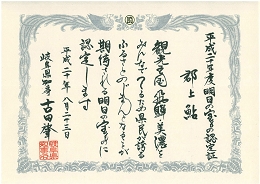 平成二十年度明日の宝もの認定証
郡上鮎
観光王国飛騨・美濃を
みんなでつくろう県民が誇る
ふるさとのじまんとなることが
期待される明日の宝ものに
認定します
平成二十年八月二十三日
岐阜県知事
古田肇